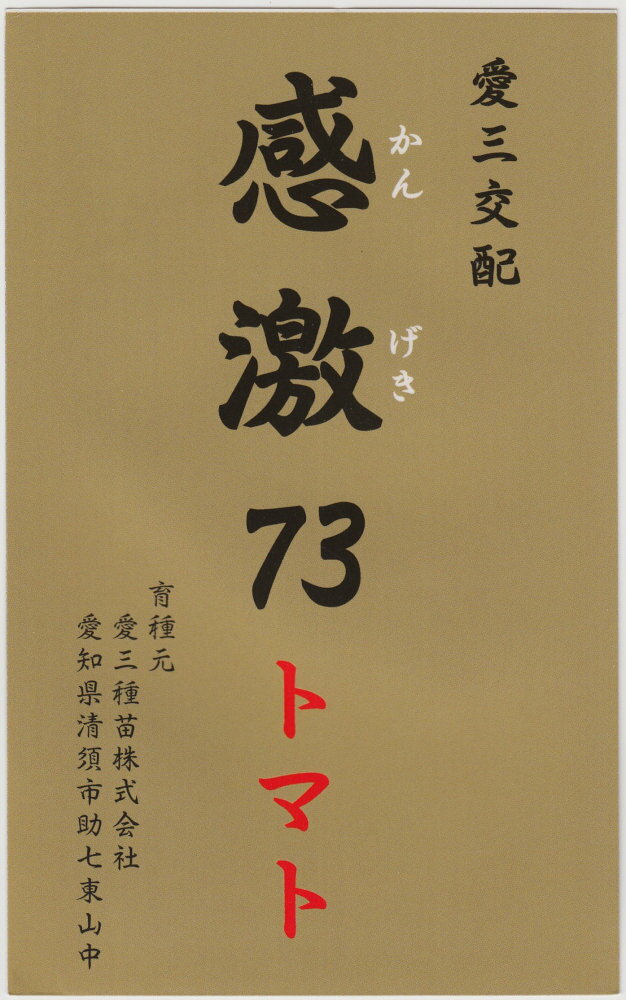 愛三交配
かんげき
感激73トマト
育種元
愛三種苗株式会社
愛知県清須市助七東山中